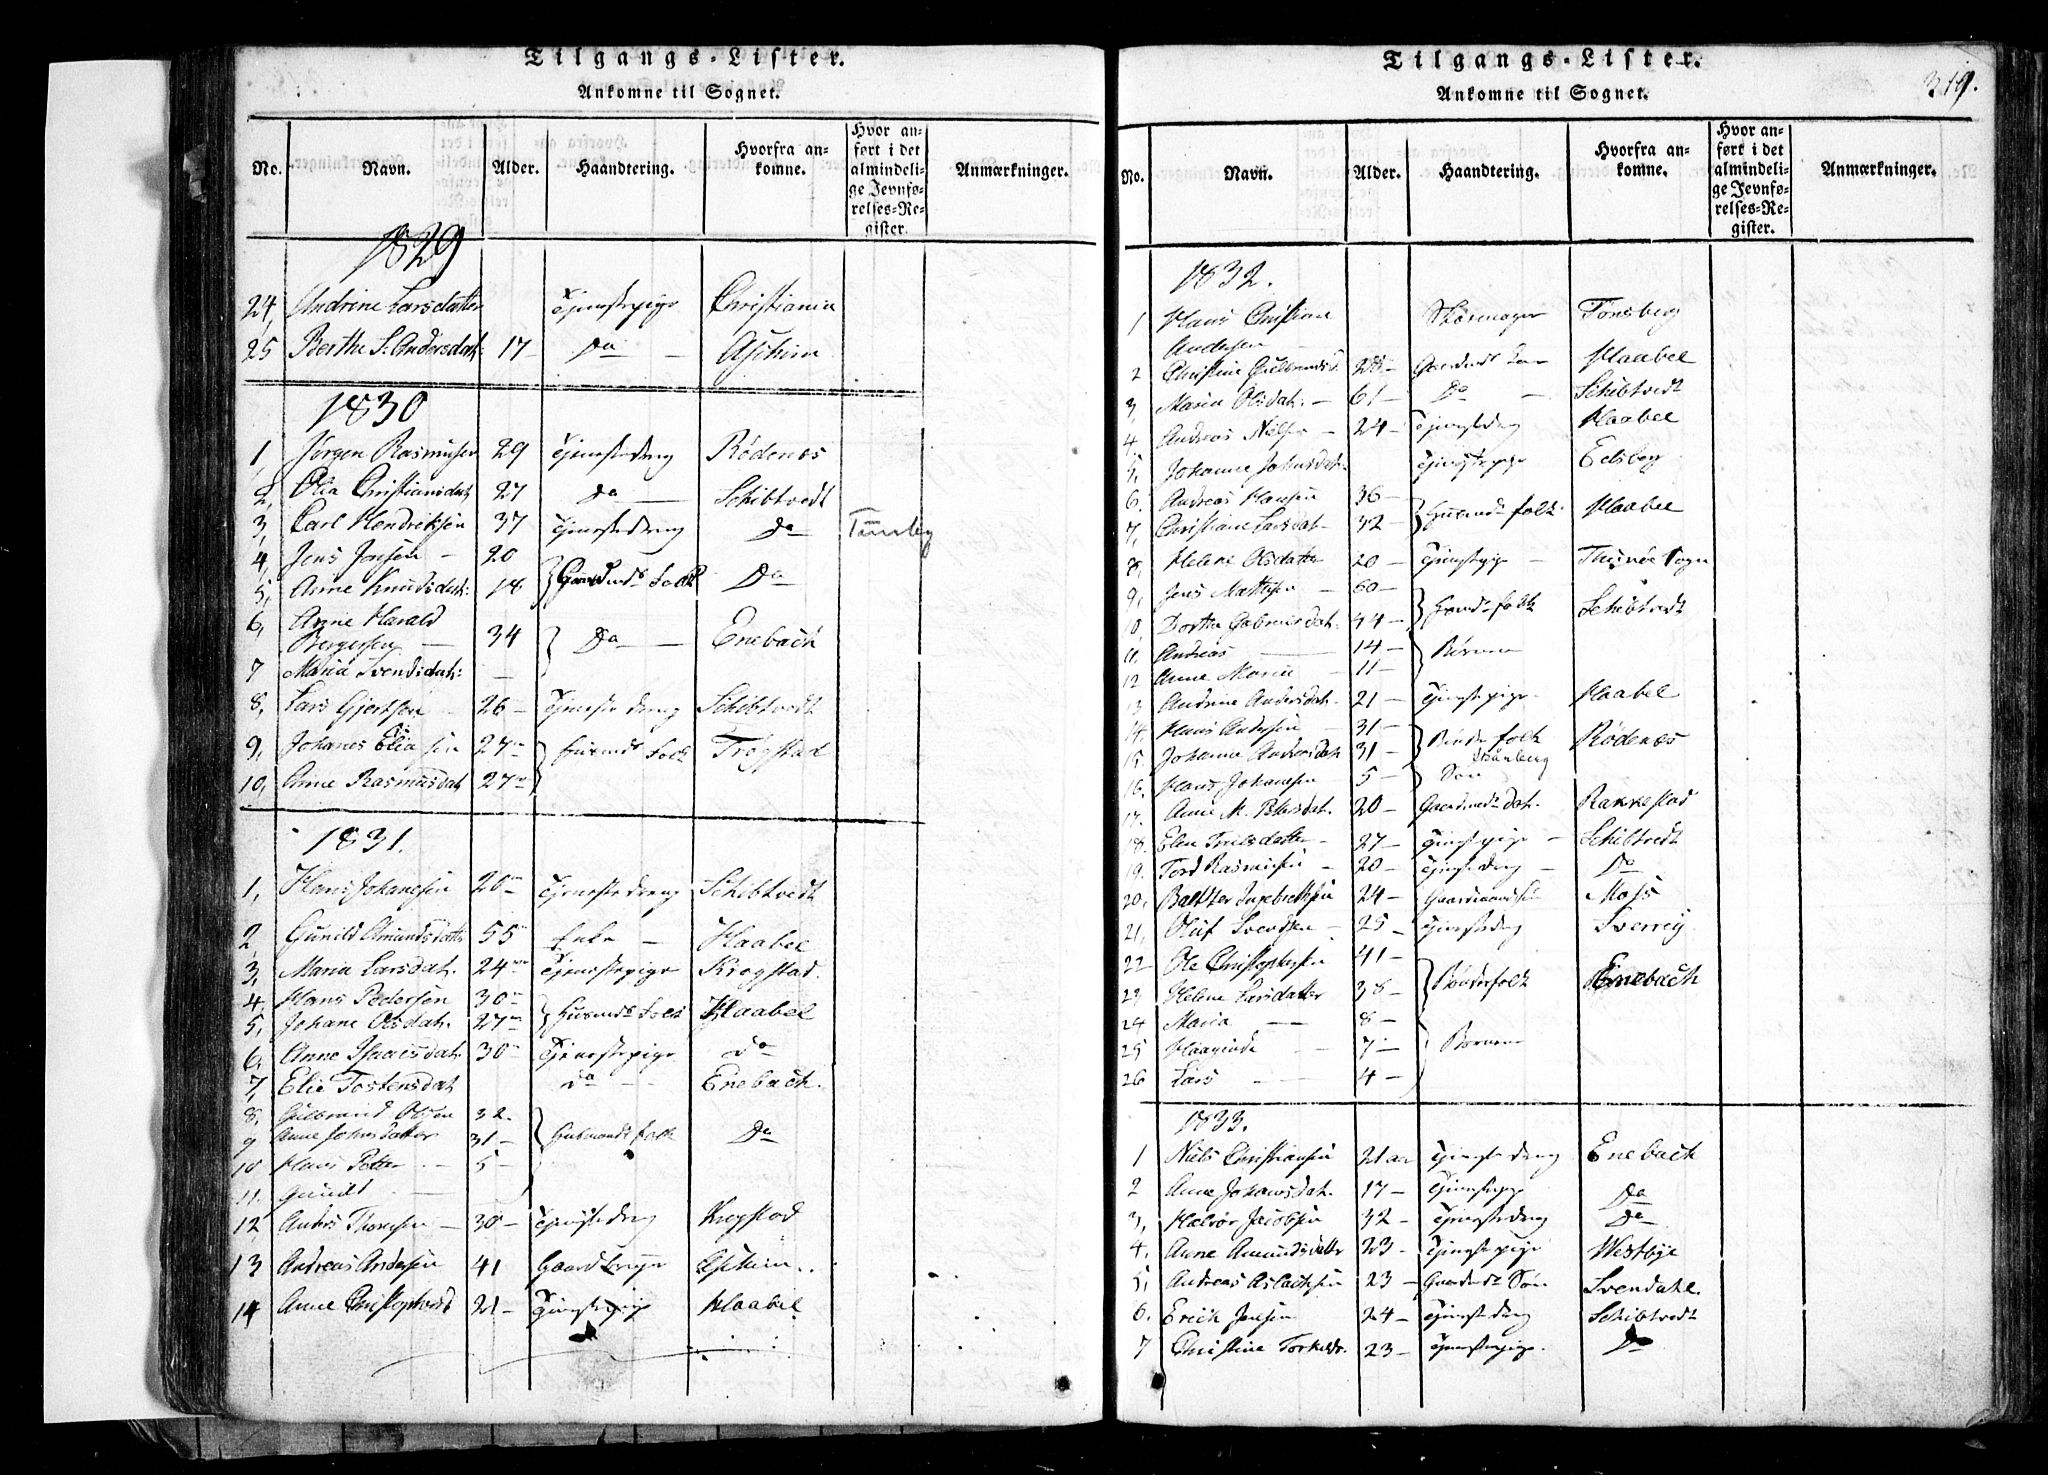 Tilgangs-Lister.
Ankomne til Sognet.
No. Navn. Alder. Haandtering. Hvorfra an-komne. Hvor an-ført i det almindeli-ge Jevnfø-relses-Re-gister. Anmærkninger.
1829
24, Andrine Larsdatter Tjenestepige Christiania
25 Berthe S. Andersdat: 17 Do Aschim
1830
1, Jørgen Rasmusen 29 Tjenestedreng Rødenes
2, Olia Christiansdat 27 Do Schibtvedt
3, Carl Hendriksen 37 Tjenestedreng Do
4, Jens Jensen 20
5, Anne Knudsdat: 18 Gaardmds Folk Do
6, Arne Harald
Bergersen 34 Do Enebach
7 Maria Svendsdat:
8, Lars Gjertsen 26 Tjenestedreng Schibtvedt
9, Johanes Eliasen 27 Huusmds Folk Trøgstad
10, Anne Rasmusdat 27
1831.
1, Hans Johanesen 26 Tjenestedreng Schibtvedt
2 Gunild Amundsdatter 55 Enke Haabel
3, Maria Larsdat. 24 Tjenestepige Krogstad.
4, Hans Pedersen 30
5, Johane Olsdat. 27 Huusmds Folk Haabel
6, Anne Isaacsdat. 30 Tjenestepige do
7, Elie Tostensdat do Enebach.
8, Gulbrand Olsen 32
9 Anne Johnsdatter 31 Husmands folk Do
10 Hans Petter 5
11. Gunild
12 Anders Thoresen 30 Tjenestedreng Krogstad
13 Andreas Andersen 41 Gaardbruger Aschim
14 Anne Christophersd 21 Tjenestepige Haabel
Tilgangs-Lister.
Ankomne til Sognet.
319.
No. Navn. Alder. Haandtering. Hvorfra an-komne. Hvor an-ført i det almindeli-ge Jevnfø-relses-Re-gister. Anmærkninger.
1832.
1 Hans Christian Skoemager Tønsberg
Andersen
2 Christine Gulbrandsd. 28 Haabel
3, Maria Olsdat. 61 Do Schibtvedt
4 Andreas Nilsen 24 Tjenestedreng Haabel
5, Johanne Johnsdat. Tjenestepige Edsberg
6. Andreas Hansen 36
7, Christiane Larsdat. 32 Huusmds folk Haabel
8, Helene Olsdatter 20 Tjenestepige Sogn
9, Jens Mathisen 60
10, Dorthe Gabrielsdat. 44 Gaardmds folk Schibtvedt
11, Andreas 14 Børnene
12 Anne Maria 11
13 Andrine Andersdat. 21 Tjenestepige Haabel
14. Hans Andersen 31
15 Johanne Andersdat 31 Bønderfolk Rødenes
16. Hans Johansen 5 Søn
17. Anne M. Pedersdat. 20 Gaardmds dat. Rakkestad
18. Elen Truelsdatter 27 Tjenestepige Schibtvedt
19. Tord Rasmusen 20 Tjenestedreng Do
20, Baltzer Ingebrethsen 24 Gaardmandsøn Moss
21, Oluf Svendsen 25 Tjenestedreng Sverrig.
22 Ole Christophersen 41
23 Helene Larsdatter 38 Bønderfolk Enebach
24 Maria 8
25 7 Børnene
26 Lars 4
1833.
1 Niels Christiansen 21 aar Tjenestedreng Enebach
2 Anne Johansdat. 17 Tjenestepige Do
3, Halvor Jacobsen 32 Tjenestedreng Do
4. Anne Amundsdattr 23 Tjenestepige Westbye
5, Andreas Aslachsen 23 Gaardmds Søn Svendahl
6. Erich Jensen 24 Tjenestedreng Schibtvedt
7 Christine Torkelsd. 23 Tjenestepige Do